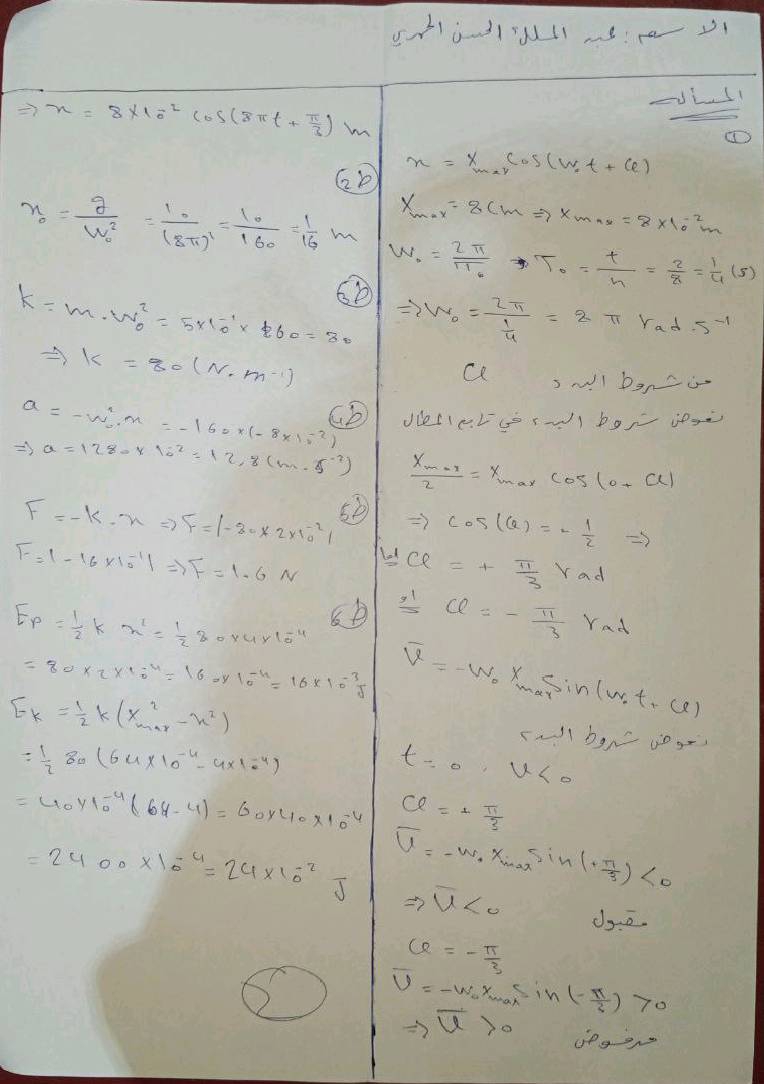 الاسم: عبد الملك الحسن الحمدي
المسألة
①
x = Xmax cos(ω₀t + φ)
Xmax = 8cm ⇒ Xmax = 8×10⁻²m
ω₀ = 2π/T₀ → T₀ = t/n = 2/8 = 1/4 (s)
⇒ ω₀ = 2π/(1/4) = 8 π rad.s⁻¹
من شروط البدء φ
نعوض شروط البدء في تابع المطال
Xmax/2 = Xmax cos(0 + φ)
⇒ cos(φ) = + 1/2 ⇒
إما φ = + π/3 rad
أو φ = - π/3 rad
v̄ = -ω₀ Xmax sin(ω₀t + φ)
نعوض شروط البدء
t = 0 , v<0
φ = + π/3
v̄ = -ω₀ Xmax sin(+π/3) <0
⇒ v̄ <0
مقبول
φ = - π/3
v̄ = -ω₀ Xmax sin(-π/3) >0
⇒ v̄ >0
مرفوض
⇒ x = 8×10⁻² cos(8πt + π/3) m
2b
x₀ = g/ω₀² = 10/(8π)² = 10/160 = 1/16 m
3b
k = m.ω₀² = 5×10⁻¹ × 160 = 80
⇒ k = 80 (N.m⁻¹)
4b
a = -ω₀².x = -160×(-8×10⁻²)
⇒ a = 1280×10⁻² = 12,8 (m.s⁻²)
5b
F = -k.x ⇒ F = |-80×2×10⁻²|
F = |-16×10⁻¹| ⇒ F = 1.6 N
6b
Ep = 1/2 k x² = 1/2 80×4×10⁻⁴
= 80×2×10⁻⁴ = 160×10⁻⁴ = 16×10⁻³ J
Ek = 1/2 k (X²max - x²)
= 1/2 80 (64×10⁻⁴ - 4×10⁻⁴)
= 40×10⁻⁴ (64 - 4) = 60×40×10⁻⁴
= 2400×10⁻⁴ = 24×10⁻² J